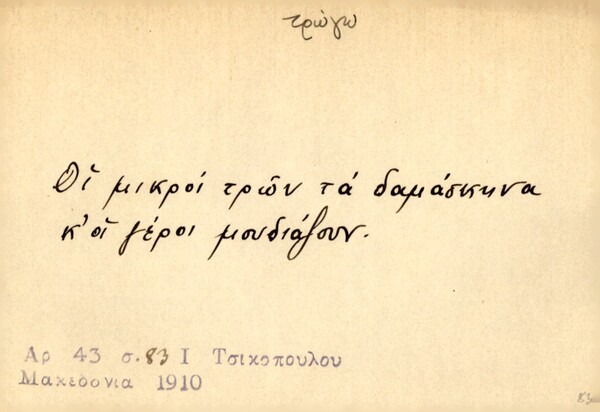 τρώγω
Οἱ μικροί τρῶν τά δαμάσκηνα
κ' οἱ γέροι μουδιάζουν.
Αρ 43 σ. 83 Ι Τσικοπουλου
Μακεδονια 1910
83